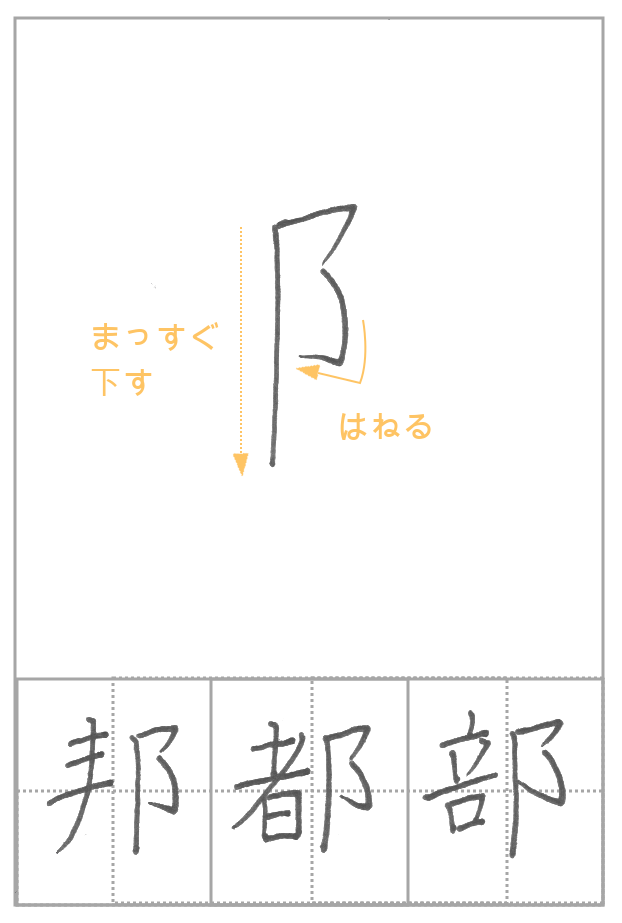 阝
まっすぐ
下す
はねる
邦都部